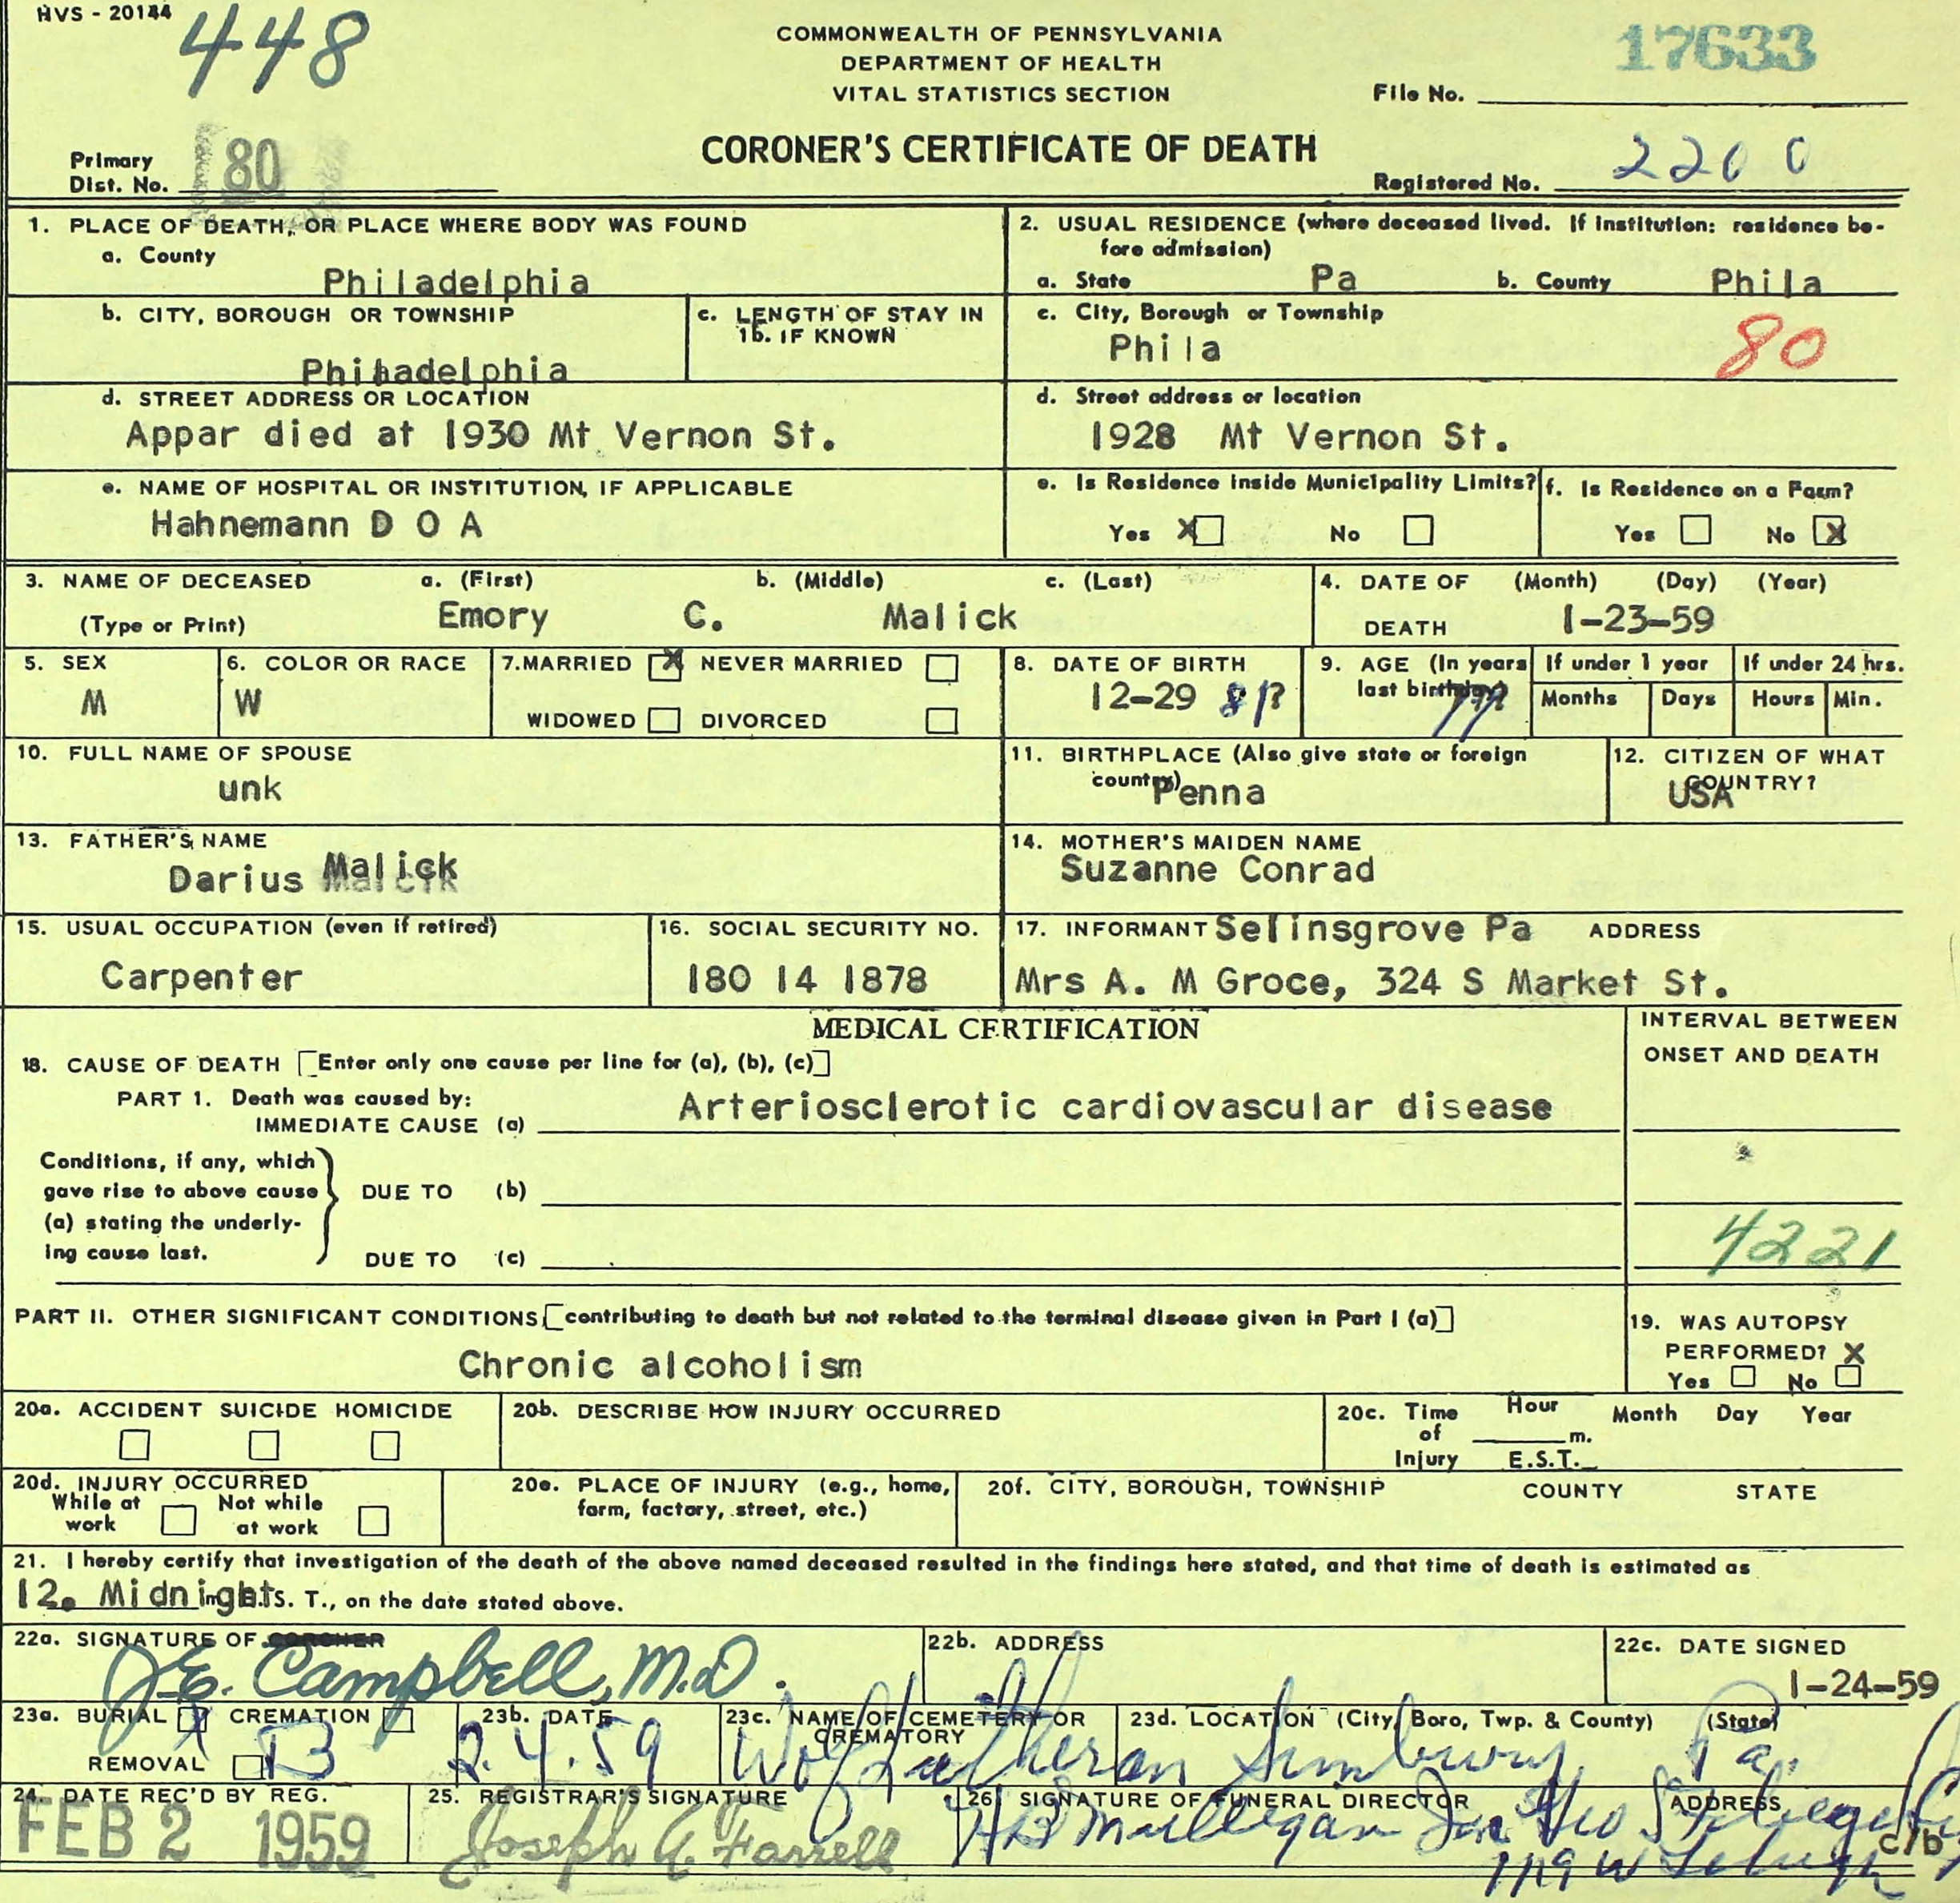 HVS - 20144
448
COMMONWEALTH OF PENNSYLVANIA
DEPARTMENT OF HEALTH
VITAL STATISTICS SECTION
17633
File No.
CORONER'S CERTIFICATE OF DEATH
Primary
Dist. No. 80
Registered No. 2200
1. PLACE OF DEATH, OR PLACE WHERE BODY WAS FOUND
a. County
Philadelphia
2. USUAL RESIDENCE (where deceased lived. If institution: residence be-
fore admission)
a. State Pa b. County Phila
b. CITY, BOROUGH OR TOWNSHIP
Philadelphia
c. LENGTH OF STAY IN
1b. IF KNOWN
c. City, Borough or Township
Phila
80
d. STREET ADDRESS OR LOCATION
Appar died at 1930 Mt Vernon St.
d. Street address or location
1928 Mt Vernon St.
e. NAME OF HOSPITAL OR INSTITUTION, IF APPLICABLE
Hahnemann D O A
e. Is Residence inside Municipality Limits?
Yes X No
f. Is Residence on a Farm?
Yes No X
3. NAME OF DECEASED a. (First) b. (Middle) c. (Last)
(Type or Print) Emory C. Malick
4. DATE OF (Month) (Day) (Year)
DEATH 1-23-59
5. SEX
M
6. COLOR OR RACE
W
7. MARRIED X NEVER MARRIED
WIDOWED DIVORCED
8. DATE OF BIRTH
12-29 81?
9. AGE (In years
last birthday)
77
If under 1 year
Months Days
If under 24 hrs.
Hours Min.
10. FULL NAME OF SPOUSE
unk
11. BIRTHPLACE (Also give state or foreign
country)
Penna
12. CITIZEN OF WHAT
COUNTRY?
USA
13. FATHER'S NAME
Darius Malick
14. MOTHER'S MAIDEN NAME
Suzanne Conrad
15. USUAL OCCUPATION (even if retired)
Carpenter
16. SOCIAL SECURITY NO.
180 14 1878
17. INFORMANT Selinsgrove Pa ADDRESS
Mrs A. M Groce, 324 S Market St.
MEDICAL CERTIFICATION
INTERVAL BETWEEN
ONSET AND DEATH
18. CAUSE OF DEATH [Enter only one cause per line for (a), (b), (c)]
PART 1. Death was caused by:
IMMEDIATE CAUSE (a) Arteriosclerotic cardiovascular disease
Conditions, if any, which
gave rise to above cause
(a) stating the underly-
ing cause last.
DUE TO (b)
DUE TO (c)
4221
PART II. OTHER SIGNIFICANT CONDITIONS [contributing to death but not related to the terminal disease given in Part I (a)]
Chronic alcoholism
19. WAS AUTOPSY
PERFORMED? X
Yes No
20a. ACCIDENT SUICIDE HOMICIDE
20b. DESCRIBE HOW INJURY OCCURRED
20c. Time
of
Injury
Hour
m.
E.S.T.
Month Day Year
20d. INJURY OCCURRED
While at
work
Not while
at work
20e. PLACE OF INJURY (e.g., home,
farm, factory, street, etc.)
20f. CITY, BOROUGH, TOWNSHIP COUNTY STATE
21. I hereby certify that investigation of the death of the above named deceased resulted in the findings here stated, and that time of death is estimated as
12. Midnight S. T., on the date stated above.
22a. SIGNATURE OF CORONER
J.E. Campbell, M.D.
22b. ADDRESS
22c. DATE SIGNED
1-24-59
23a. BURIAL X CREMATION
REMOVAL B
23b. DATE
2.4.59
23c. NAME OF CEMETERY OR
CREMATORY
Wolf Lutheran
23d. LOCATION (City, Boro, Twp. & County) (State)
Sunbury Pa.
24. DATE REC'D BY REG.
FEB 2 1959
25. REGISTRAR'S SIGNATURE
Joseph A. Farrell
26. SIGNATURE OF FUNERAL DIRECTOR ADDRESS
HB Mulligan Geo
c/b
1119 W Lehigh